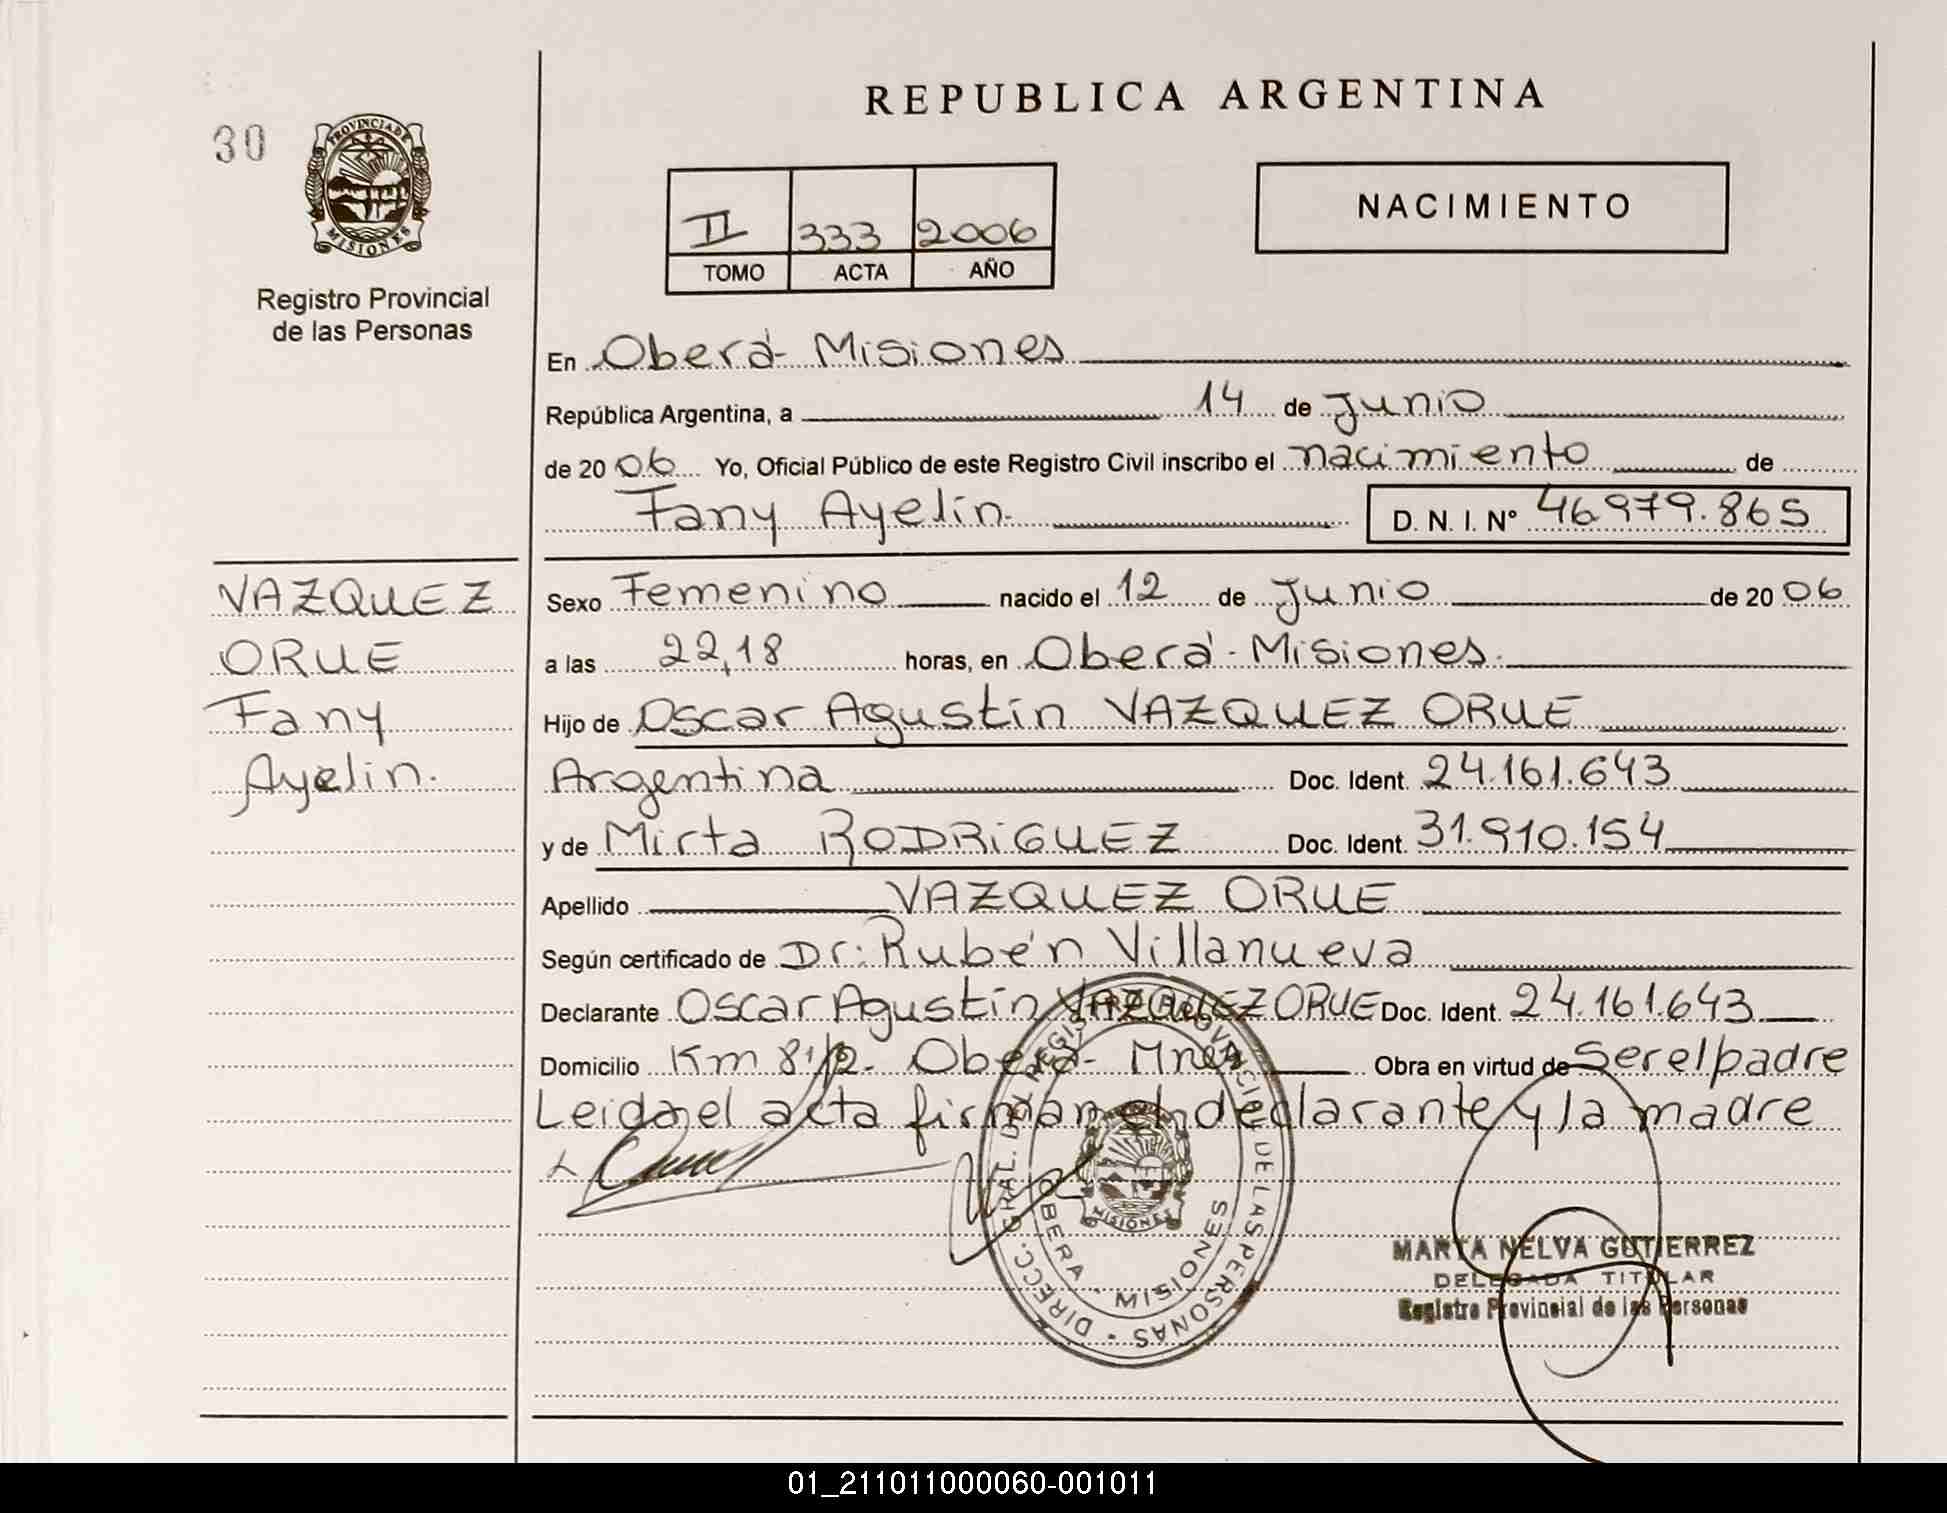 REPUBLICA ARGENTINA
30
PROVINCIA DE
MISIONES
Registro Provincial
de las Personas
II 333 2006
TOMO ACTA AÑO
NACIMIENTO
En Oberá- Misiones
República Argentina, a 14 de Junio
de 20 06 Yo, Oficial Público de este Registro Civil inscribo el nacimiento de
Fany Ayelin. D. N. I. N° 46.979.865
VAZQUEZ
ORUE
Fany
Ayelin.
Sexo Femenino nacido el 12 de Junio de 20 06
a las 22,18 horas, en Oberá - Misiones.
Hijo de Oscar Agustín VAZQUEZ ORUE
Argentina Doc. Ident. 24.161.643
y de Mirta RODRiGUEZ Doc. Ident. 31.910.154
Apellido VAZQUEZ ORUE
Según certificado de Dr: Rubén Villanueva
Declarante Oscar Agustín VAZQUEZ ORUE Doc. Ident. 24.161.643
Domicilio Km 8 1/2- Oberá- Mnes Obra en virtud de Ser el padre
Leida el acta firman el declarante y la madre
DIRECC. GRAL. DEL REGISTRO PROVINCIAL DE LAS PERSONAS
MISIONES
OBERA - MISIONES
MARTA NELVA GUTIERREZ
DELEGADA TITULAR
Registro Provincial de las Personas
01_211011000060-001011